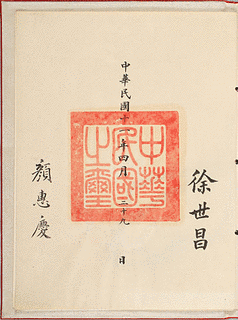 徐世昌
中華民國十一年四月二十九日
中華
民國
之璽
顏惠慶